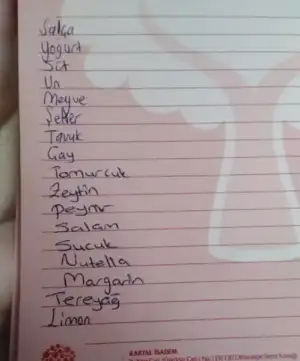 Salça
Yogurt
Süt
Un
Meyve
Şeker
Tavuk
Gay
Tomurcuk
Zeytin
Peynir
Salam
Sucuk
Nutella
Margarin
Tereyağ
Limon
KARTAL İŞADEM